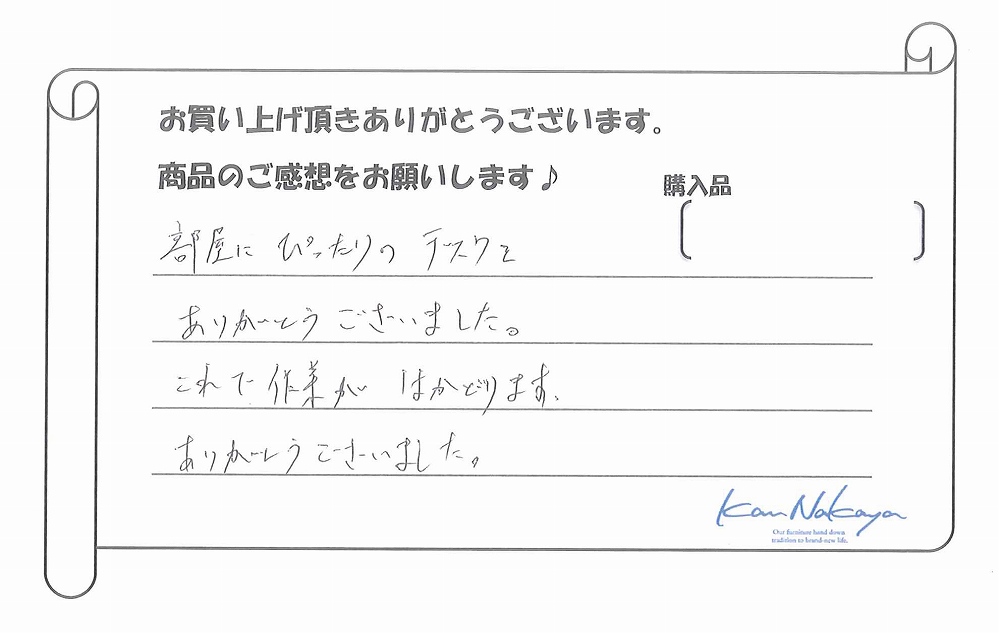 お買い上げ頂きありがとうございます。
商品のご感想をお願いします♪
購入品
部屋に ぴったりの デスクを
ありがとう ございました。
これで 作業が はかどります。
ありがとうございました。
Kan Nakaya
Our furniture hand down
tradition to brand-new life.